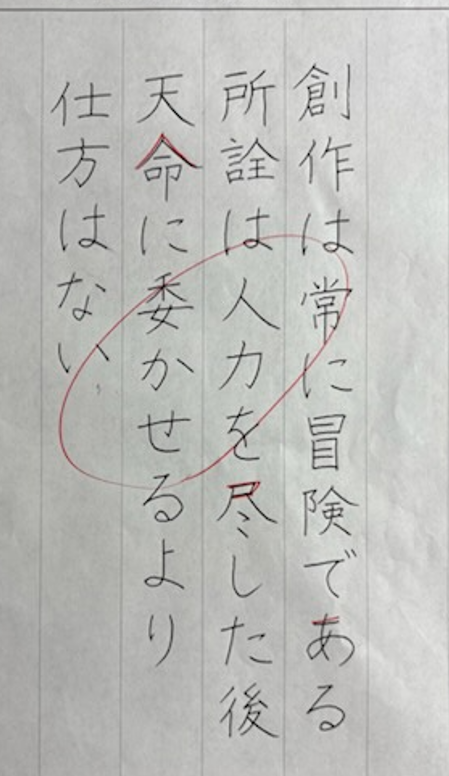 創作は常に冒険である
所詮は人力を尽した後
天命に委かせるより
仕方はない